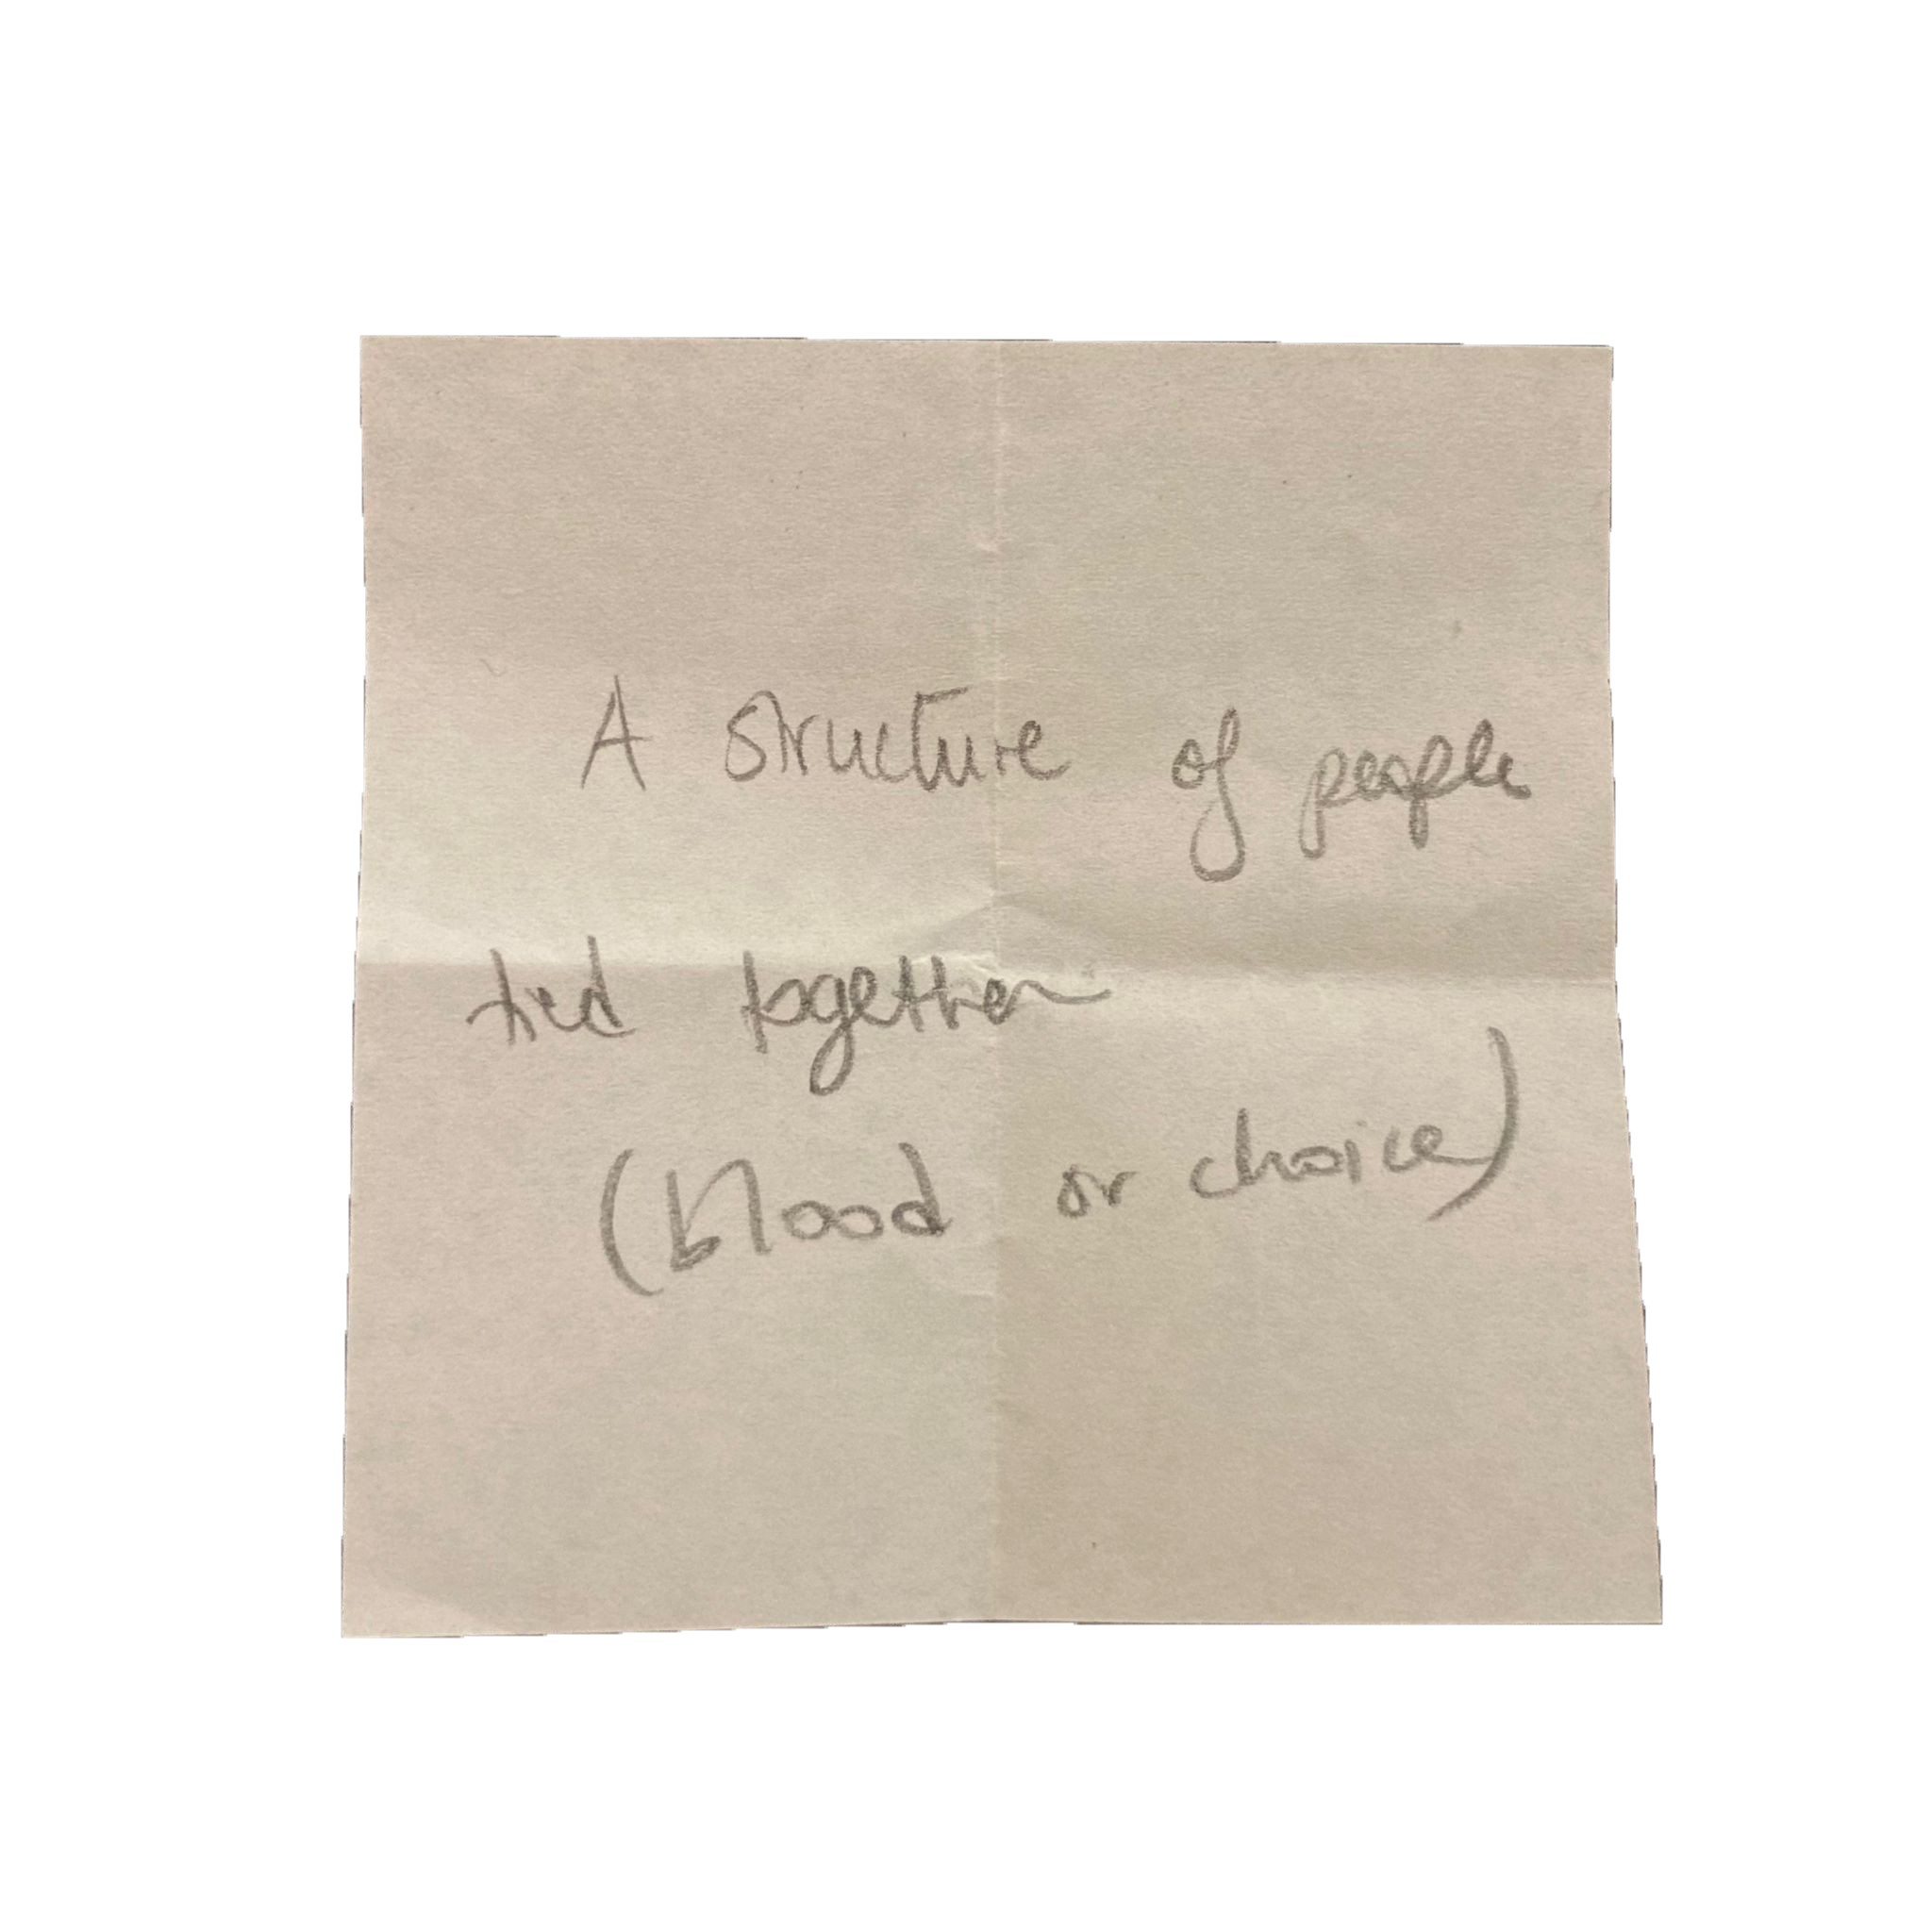 A structure of people
tied together
(blood or choice)